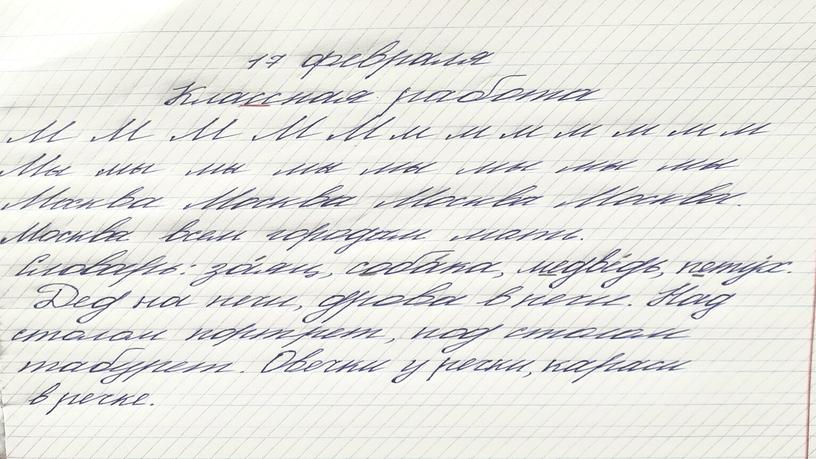 17 февраля
Классная работа
М М М М М м м м м м м м
Мы мы мы мы мы мы мы мы
Москва Москва Москва Москва.
Москва всем городам мать.
Словарь: за́яц, соба́ка, медве́дь, пету́х.
Дед на печи, дрова в печи. Над
столом портрет, под столом
табурет. Овечки у речки, караси
в речке.